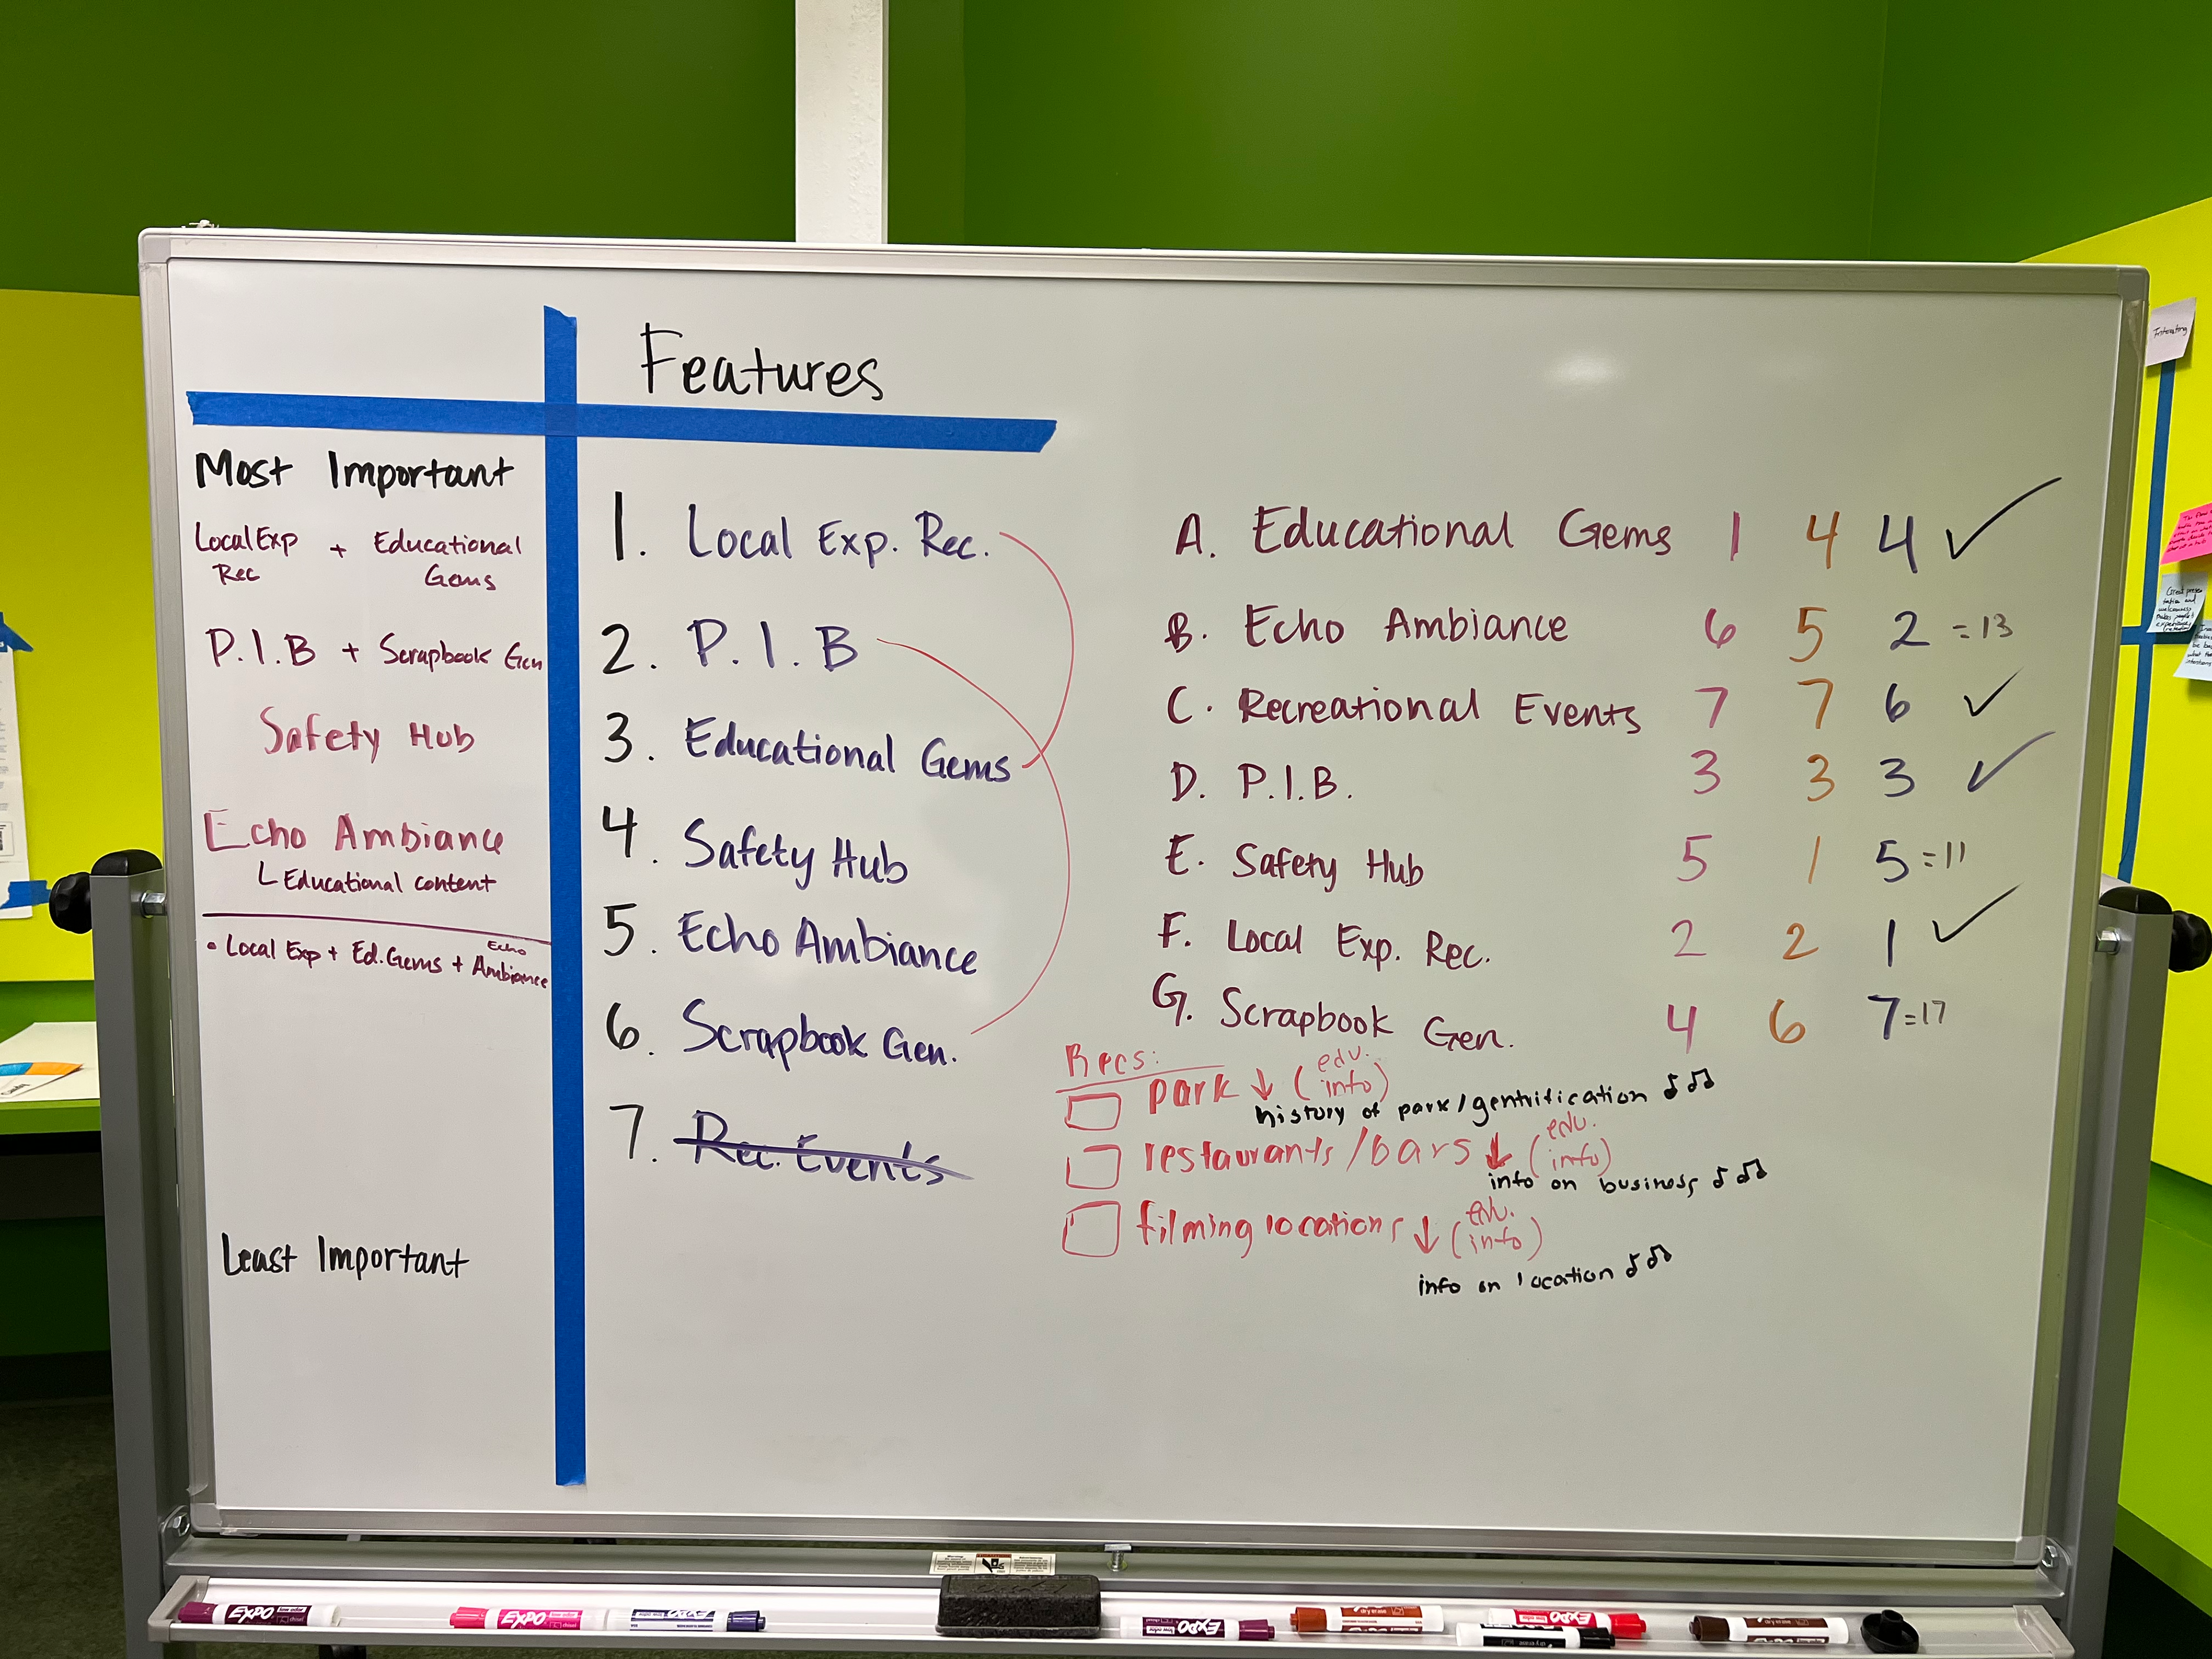 Features
Most Important
Local Exp Rec + Educational Gems
P.I.B + Scrapbook Gen
Safety Hub
Echo Ambiance
Educational content
• Local Exp + Ed. Gems + Echo Ambiance
Least Important
1. Local Exp. Rec.
2. P.I.B
3. Educational Gems
4. Safety Hub
5. Echo Ambiance
6. Scrapbook Gen.
7. Rec. Events
A. Educational Gems 1 4 4 ✓
B. Echo Ambiance 6 5 2 = 13
C. Recreational Events 7 7 6 ✓
D. P.I.B. 3 3 3 ✓
E. Safety Hub 5 1 5 = 11
F. Local Exp. Rec. 2 2 1 ✓
G. Scrapbook Gen. 4 6 7 = 17
Recs:
park ↓ (edu. info)
history of park/gentrification ♪♫
restaurants/bars ↓ (edu. info)
info on business ♪♫
filming locations ↓ (edu. info)
info on location ♪♫
EXPO
EXPO
EXPO
EXPO
EXPO